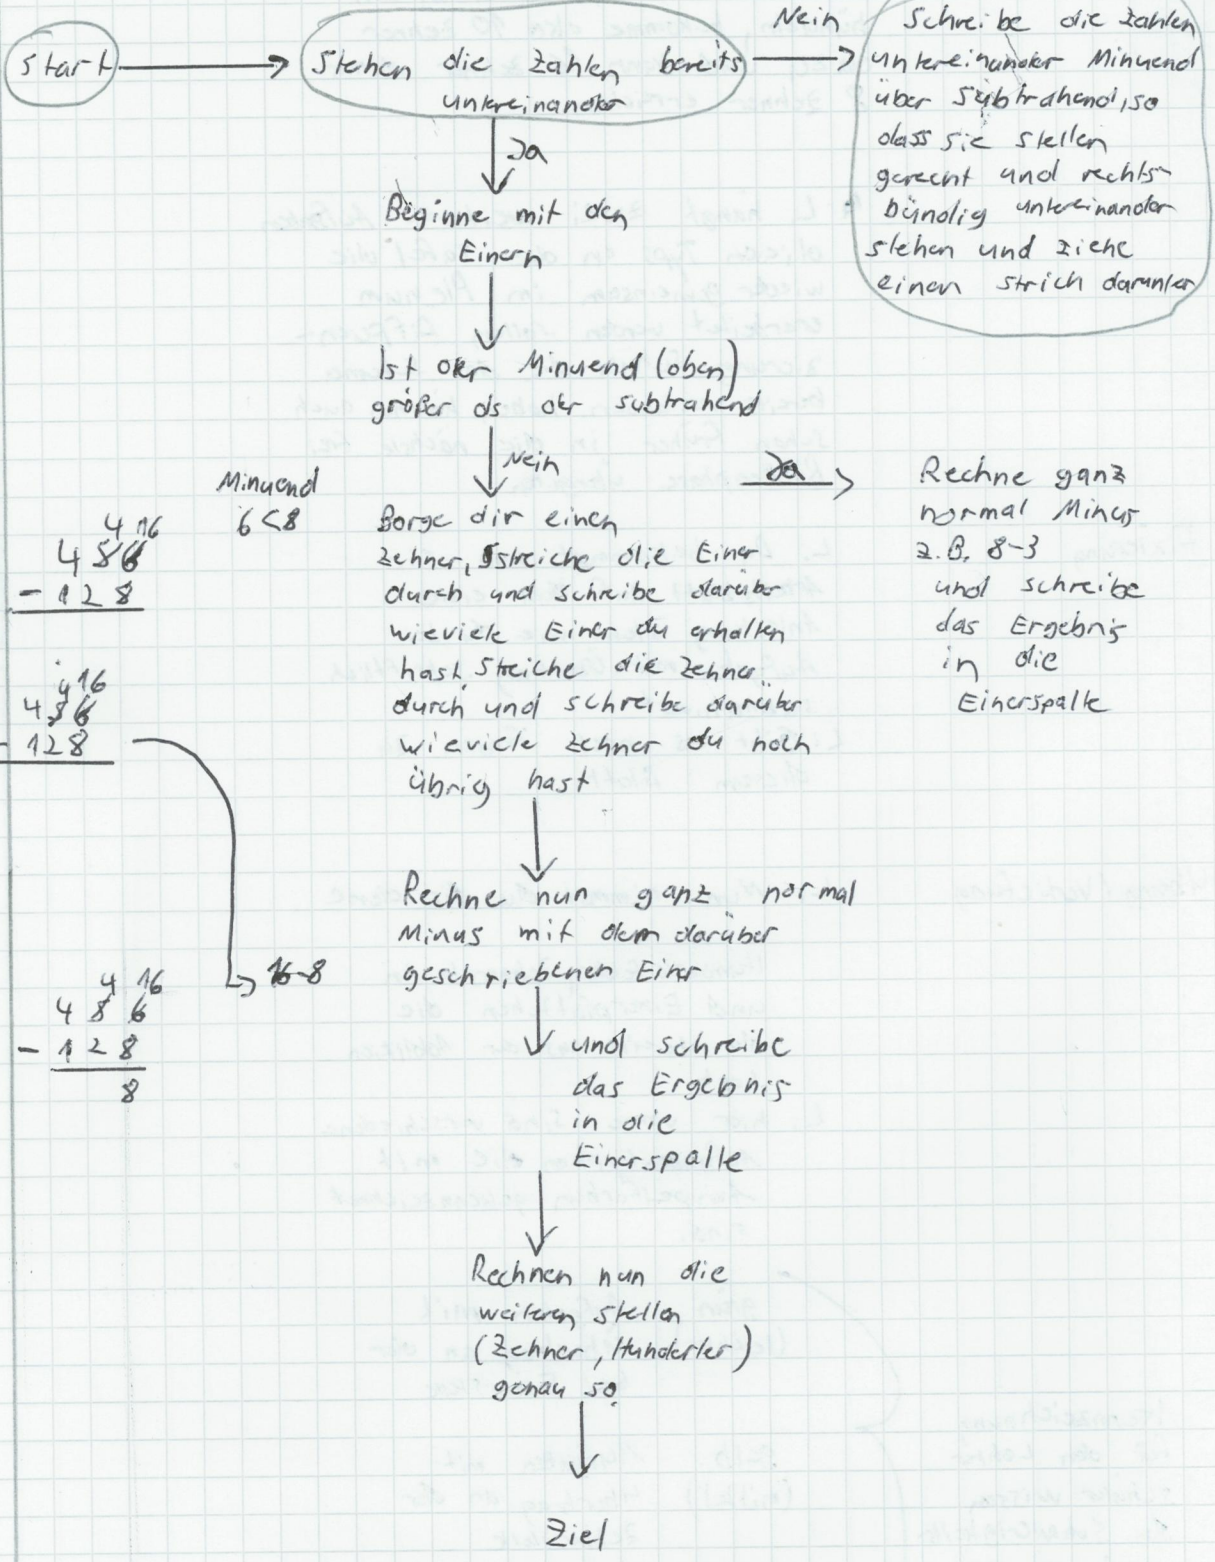 Start
Stehen die Zahlen bereits
untereinander
Nein
Schreibe die Zahlen
untereinander Minuend
über Subtrahend, so
dass sie stellen
gerecht und rechts-
bündig untereinander
stehen und ziehe
einen Strich darunter
Ja
Beginne mit den
Einern
Ist der Minuend (oben)
größer als der Subtrahend
Nein
Ja
Rechne ganz
normal Minus
z.B. 8-3
und schreibe
das Ergebnis
in die
Einerspalte
Minuend
6<8
4 16
4 5 6
- 1 2 8
Borge dir einen
Zehner, streiche die Einer
durch und schreibe darüber
wieviele Einer du erhalten
hast. Streiche die Zehner
durch und schreibe darüber
wieviele Zehner du noch
übrig hast
4 16
4 5 6
- 128
Rechne nun ganz normal
Minus mit dem darüber
geschriebenen Einer
16-8
4 16
4 5 6
- 1 2 8
8
und schreibe
das Ergebnis
in die
Einerspalte
Rechnen nun die
weiteren Stellen
(Zehner, Hunderter)
genau so.
Ziel